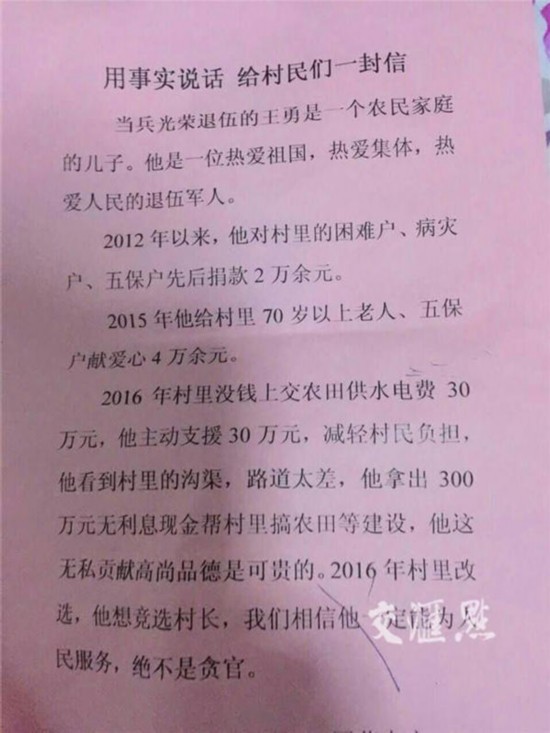 用事实说话 给村民们一封信
当兵光荣退伍的王勇是一个农民家庭
的儿子。他是一位热爱祖国，热爱集体，热
爱人民的退伍军人。
2012 年以来，他对村里的困难户、病灾
户、五保户先后捐款 2 万余元。
2015 年他给村里 70 岁以上老人、五保
户献爱心 4 万余元。
2016 年村里没钱上交农田供水电费 30
万元，他主动支援 30 万元，减轻村民负担，
他看到村里的沟渠，路道太差，他拿出 300
万元无利息现金帮村里搞农田等建设，他这
无私贡献高尚品德是可贵的。2016 年村里改
选，他想竞选村长，我们相信他一定能为人
民服务，绝不是贪官。
交汇点